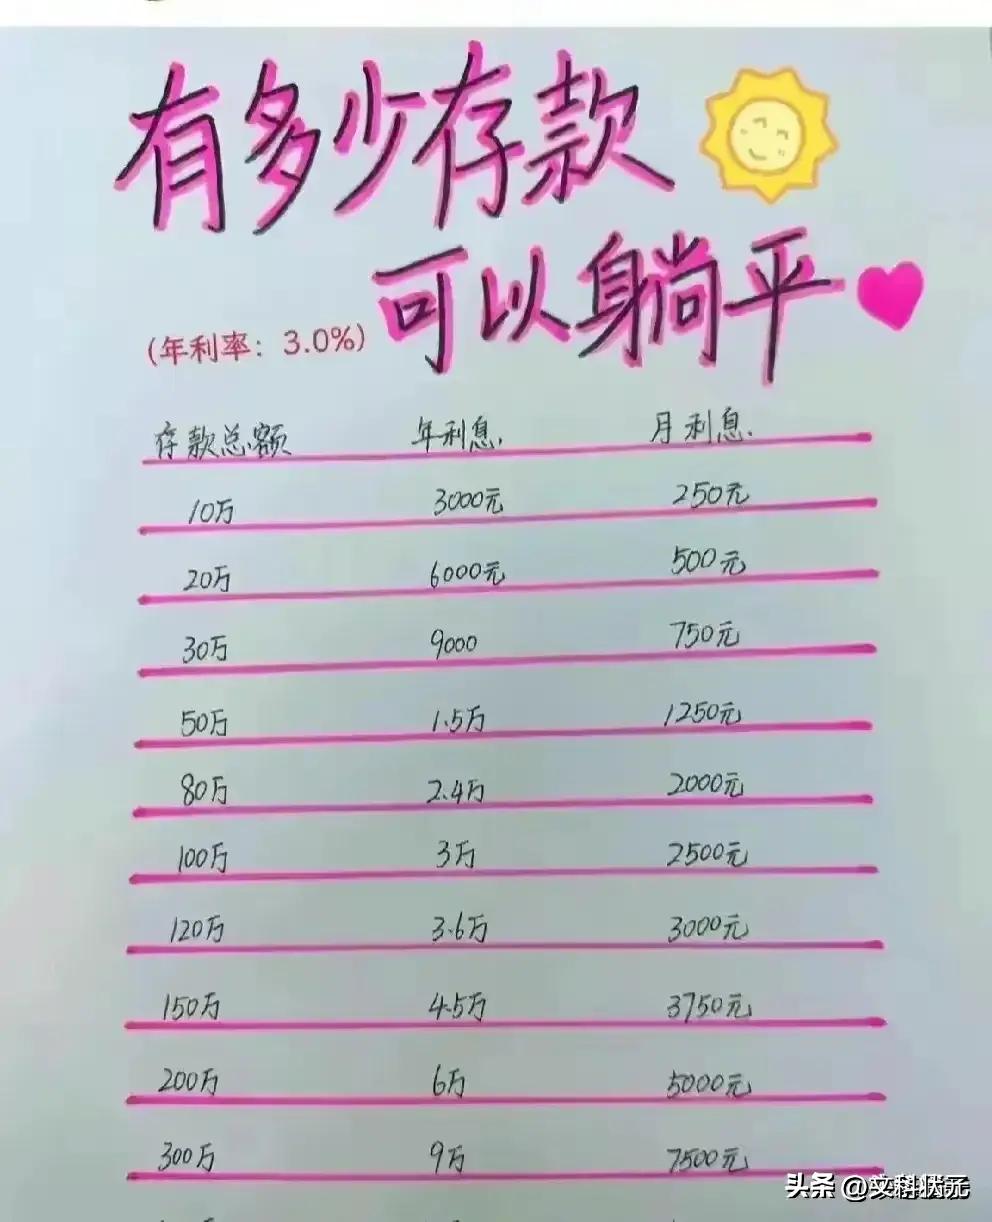 有多少存款
可以躺平
(年利率：3.0%)
存款总额 年利息 月利息
10万 3000元 250元
20万 6000元 500元
30万 9000 750元
50万 1.5万 1250元
80万 2.4万 2000元
100万 3万 2500元
120万 3.6万 3000元
150万 4.5万 3750元
200万 6万 5000元
300万 9万 7500元
头条 @文科状元